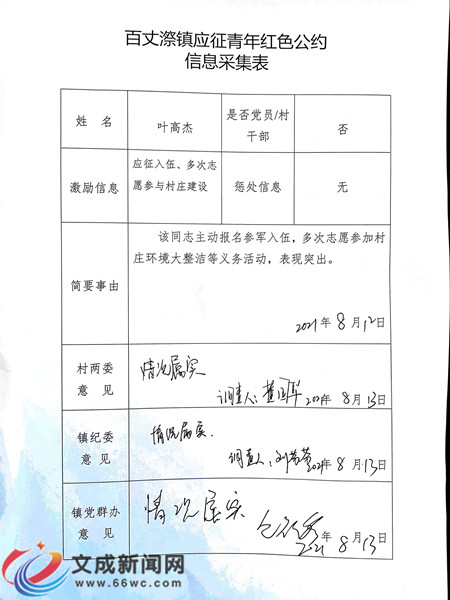 百丈漈镇应征青年红色公约
信息采集表
姓 名
叶高杰
是否党员/村
干部
否
激励信息
应征入伍、多次志
愿参与村庄建设
惩处信息
无
简要事由
该同志主动报名参军入伍，多次志愿参加村
庄环境大整洁等义务活动，表现突出。
2021年 8月12日
村两委
意 见
情况属实
调查人：
2021年 8月13日
镇纪委
意 见
情况属实.
调查人：
2021年 8月13日
镇党群办
意见
情况属实
2021年 8月13日
文成新闻网
www.66wc.com